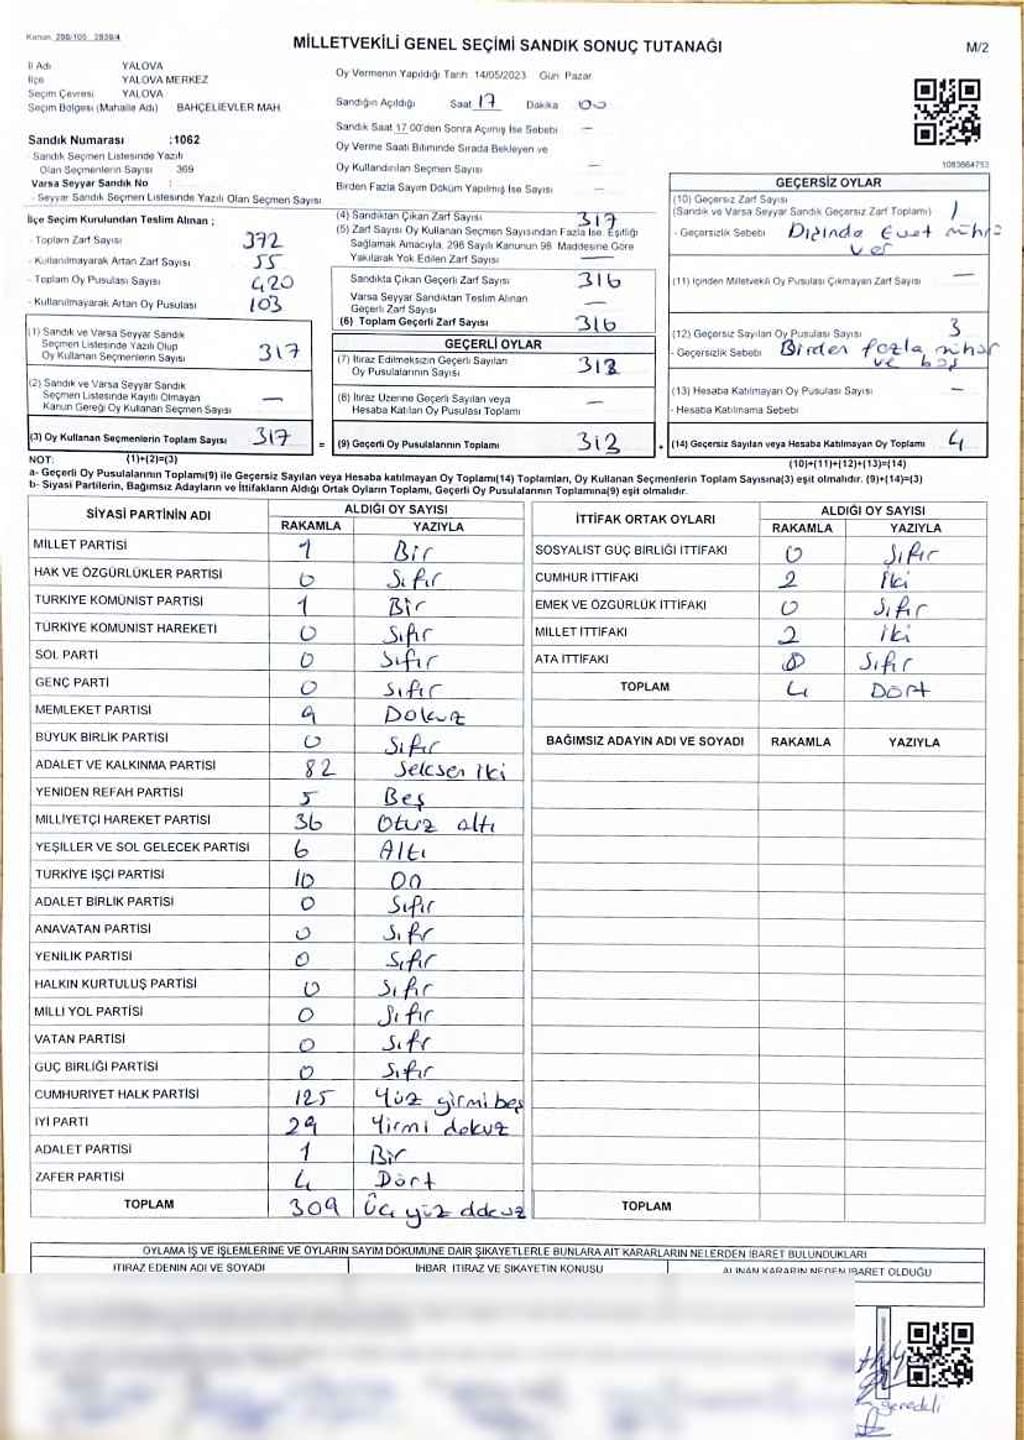 Kanun 298/105 2839/4
MİLLETVEKİLİ GENEL SEÇİMİ SANDIK SONUÇ TUTANAĞI
M/2
İl Adı YALOVA
İlçe YALOVA MERKEZ
Seçim Çevresi YALOVA
Seçim Bölgesi (Mahalle Adı) BAHÇELİEVLER MAH.
Sandık Numarası :1062
Sandık Seçmen Listesinde Yazılı
Olan Seçmenlerin Sayısı 369
Varsa Seyyar Sandık No :
- Seyyar Sandık Seçmen Listesinde Yazılı Olan Seçmen Sayısı
Oy Vermenin Yapıldığı Tarih 14/05/2023 Gün Pazar
Sandığın Açıldığı Saat 17 Dakika 00
Sandık Saat 17 00'den Sonra Açılmış İse Sebebi —
Oy Verme Saati Bitiminde Sırada Bekleyen ve
Oy Kullandırılan Seçmen Sayısı —
Birden Fazla Sayım Döküm Yapılmış İse Sayısı —
1083664753
İlçe Seçim Kurulundan Teslim Alınan ;
- Toplam Zarf Sayısı 372
- Kullanılmayarak Artan Zarf Sayısı 55
- Toplam Oy Pusulası Sayısı 420
- Kullanılmayarak Artan Oy Pusulası 103
(1) Sandık ve Varsa Seyyar Sandık
Seçmen Listesinde Yazılı Olup
Oy Kullanan Seçmenlerin Sayısı 317
(2) Sandık ve Varsa Seyyar Sandık
Seçmen Listesinde Kayıtlı Olmayan
Kanun Gereği Oy Kullanan Seçmen Sayısı —
(3) Oy Kullanan Seçmenlerin Toplam Sayısı 317
NOT: (1)+(2)=(3)
(4) Sandıktan Çıkan Zarf Sayısı 317
(5) Zarf Sayısı Oy Kullanan Seçmen Sayısından Fazla İse, Eşitliği
Sağlamak Amacıyla, 298 Sayılı Kanunun 98. Maddesine Göre
Yakılarak Yok Edilen Zarf Sayısı —
Sandıkta Çıkan Geçerli Zarf Sayısı 316
Varsa Seyyar Sandıktan Teslim Alınan
Geçerli Zarf Sayısı —
(6) Toplam Geçerli Zarf Sayısı 316
GEÇERLİ OYLAR
(7) İtiraz Edilmeksizin Geçerli Sayılan
Oy Pusulalarının Sayısı 313
(8) İtiraz Üzerine Geçerli Sayılan veya
Hesaba Katılan Oy Pusulası Toplamı —
= (9) Geçerli Oy Pusulalarının Toplamı 313
GEÇERSİZ OYLAR
(10) Geçersiz Zarf Sayısı
(Sandık ve Varsa Seyyar Sandık Geçersiz Zarf Toplamı) 1
- Geçersizlik Sebebi Dışında Evet mührü
var
(11) İçinden Milletvekili Oy Pusulası Çıkmayan Zarf Sayısı —
(12) Geçersiz Sayılan Oy Pusulası Sayısı 3
- Geçersizlik Sebebi Birden fazla mühür
ve boş
(13) Hesaba Katılmayan Oy Pusulası Sayısı —
- Hesaba Katılmama Sebebi
+ (14) Geçersiz Sayılan veya Hesaba Katılmayan Oy Toplamı 4
(10)+(11)+(12)+(13)=(14)
a- Geçerli Oy Pusulalarının Toplamı(9) ile Geçersiz Sayılan veya Hesaba katılmayan Oy Toplamı(14) Toplamları, Oy Kullanan Seçmenlerin Toplam Sayısına(3) eşit olmalıdır. (9)+(14)=(3)
b- Siyasi Partilerin, Bağımsız Adayların ve İttifakların Aldığı Ortak Oyların Toplamı, Geçerli Oy Pusulalarının Toplamına(9) eşit olmalıdır.
SİYASİ PARTİNİN ADI ALDIĞI OY SAYISI
RAKAMLA YAZIYLA
MİLLET PARTİSİ 1 Bir
HAK VE ÖZGÜRLÜKLER PARTİSİ 0 Sıfır
TÜRKİYE KOMÜNİST PARTİSİ 1 Bir
TÜRKİYE KOMÜNİST HAREKETİ 0 Sıfır
SOL PARTİ 0 Sıfır
GENÇ PARTİ 0 Sıfır
MEMLEKET PARTİSİ 9 Dokuz
BÜYÜK BİRLİK PARTİSİ 0 Sıfır
ADALET VE KALKINMA PARTİSİ 82 Seksen iki
YENİDEN REFAH PARTİSİ 5 Beş
MİLLİYETÇİ HAREKET PARTİSİ 36 Otuz altı
YEŞİLLER VE SOL GELECEK PARTİSİ 6 Altı
TÜRKİYE İŞÇİ PARTİSİ 10 On
ADALET BİRLİK PARTİSİ 0 Sıfır
ANAVATAN PARTİSİ 0 Sıfır
YENİLİK PARTİSİ 0 Sıfır
HALKIN KURTULUŞ PARTİSİ 0 Sıfır
MİLLİ YOL PARTİSİ 0 Sıfır
VATAN PARTİSİ 0 Sıfır
GÜÇ BİRLİĞİ PARTİSİ 0 Sıfır
CUMHURİYET HALK PARTİSİ 125 Yüz yirmi beş
İYİ PARTİ 29 Yirmi dokuz
ADALET PARTİSİ 1 Bir
ZAFER PARTİSİ 4 Dört
TOPLAM 309 Üç yüz dokuz
İTTİFAK ORTAK OYLARI ALDIĞI OY SAYISI
RAKAMLA YAZIYLA
SOSYALİST GÜÇ BİRLİĞİ İTTİFAKI 0 Sıfır
CUMHUR İTTİFAKI 2 İki
EMEK VE ÖZGÜRLÜK İTTİFAKI 0 Sıfır
MİLLET İTTİFAKI 2 İki
ATA İTTİFAKI 0 Sıfır
TOPLAM 4 Dört
BAĞIMSIZ ADAYIN ADI VE SOYADI RAKAMLA YAZIYLA
TOPLAM
OYLAMA İŞ VE İŞLEMLERİNE VE OYLARIN SAYIM DÖKÜMÜNE DAİR ŞİKAYETLERLE BUNLARA AİT KARARLARIN NELERDEN İBARET BULUNDUKLARI
İTİRAZ EDENİN ADI VE SOYADI İHBAR İTİRAZ VE ŞİKAYETİN KONUSU ALINAN KARARIN NEDEN İBARET OLDUĞU